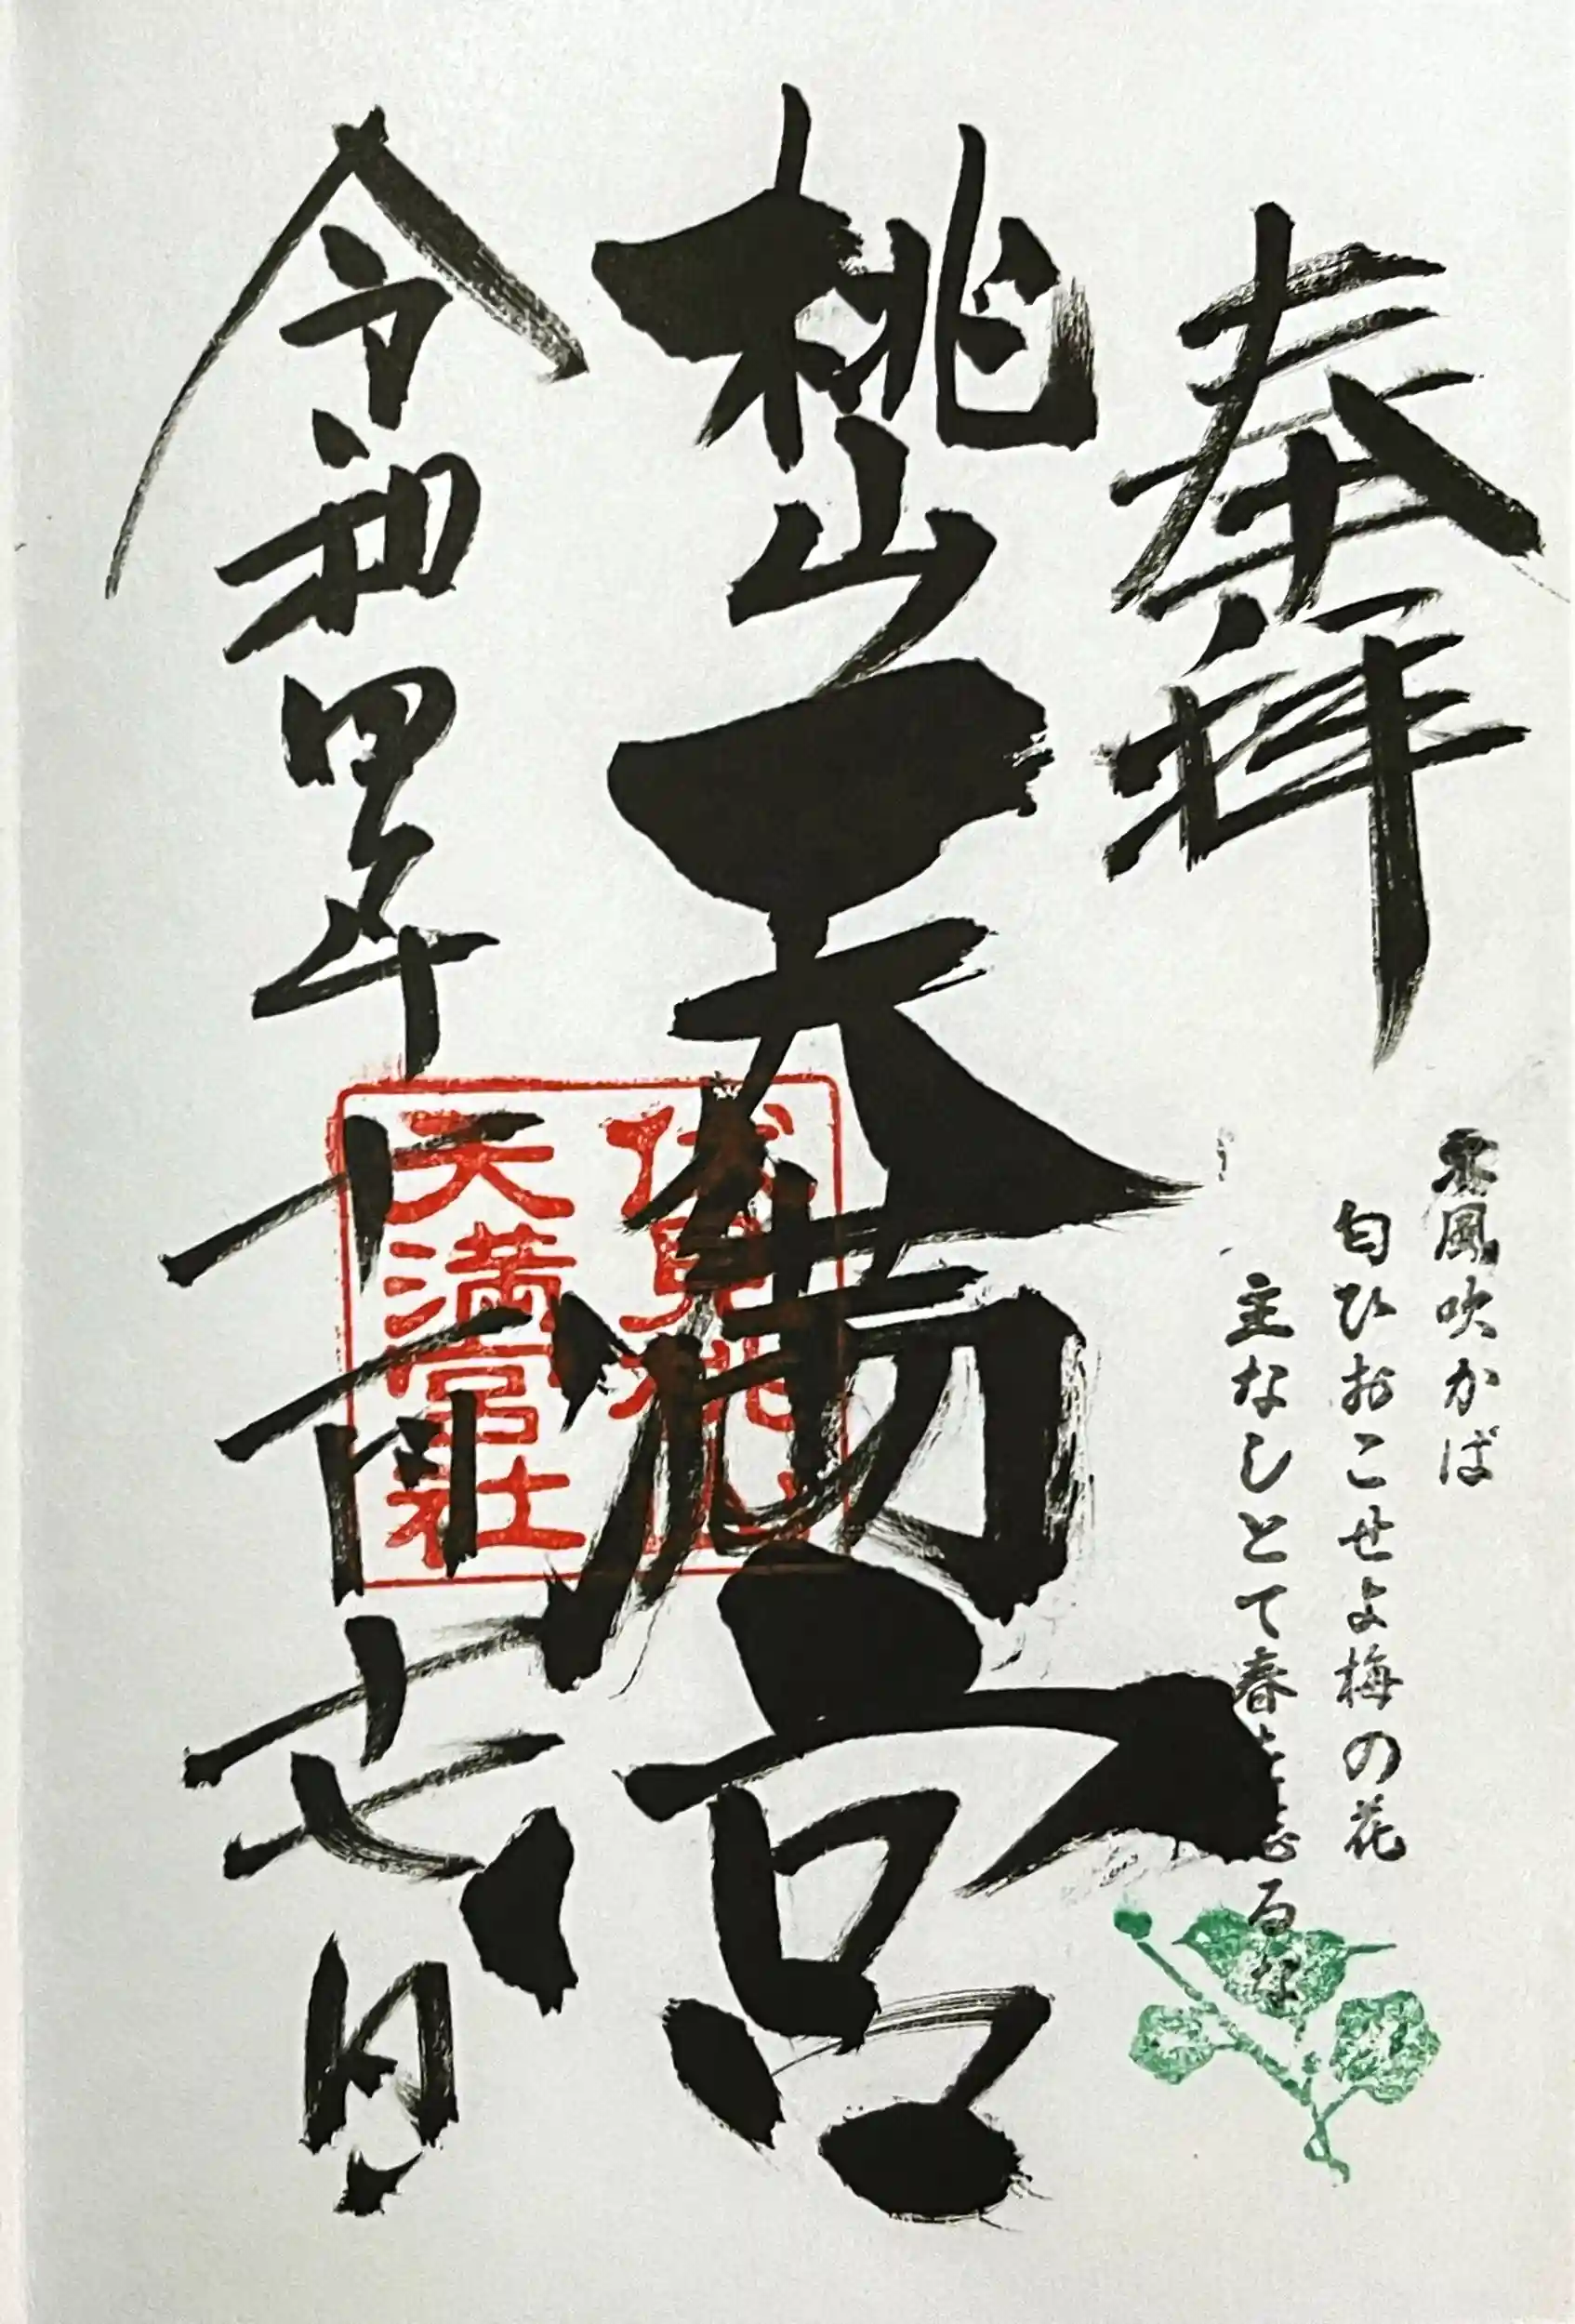 奉拝
東風吹かば
匂ひおこせよ梅の花
主なしとて春を忘るな
桃山天満宮
伏見桃山
天満宮社
令和四年十一月十七日